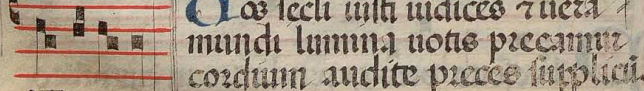 Vos secli iusti iudices ⁊ uera
mundi lumina uotis precamur
cordium audite preces supplicū.